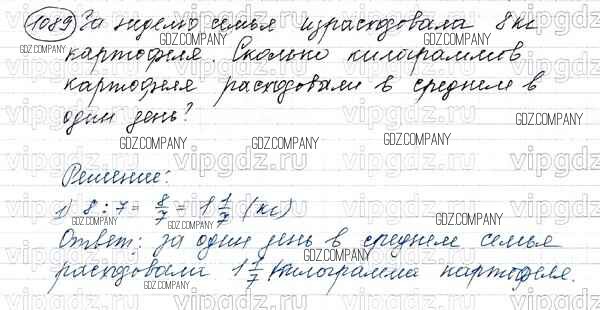 1089 За неделю семья израсходовала 8 кг
картофеля. Сколько килограммов
картофеля расходовали в среднем в
один день?
Решение:
1) 8 : 7 = 8/7 = 1 1/7 (кг)
Ответ: за один день в среднем семья
расходовали 1 1/7 килограмма картофеля.
GDZ.COMPANY
vipgdz.ru